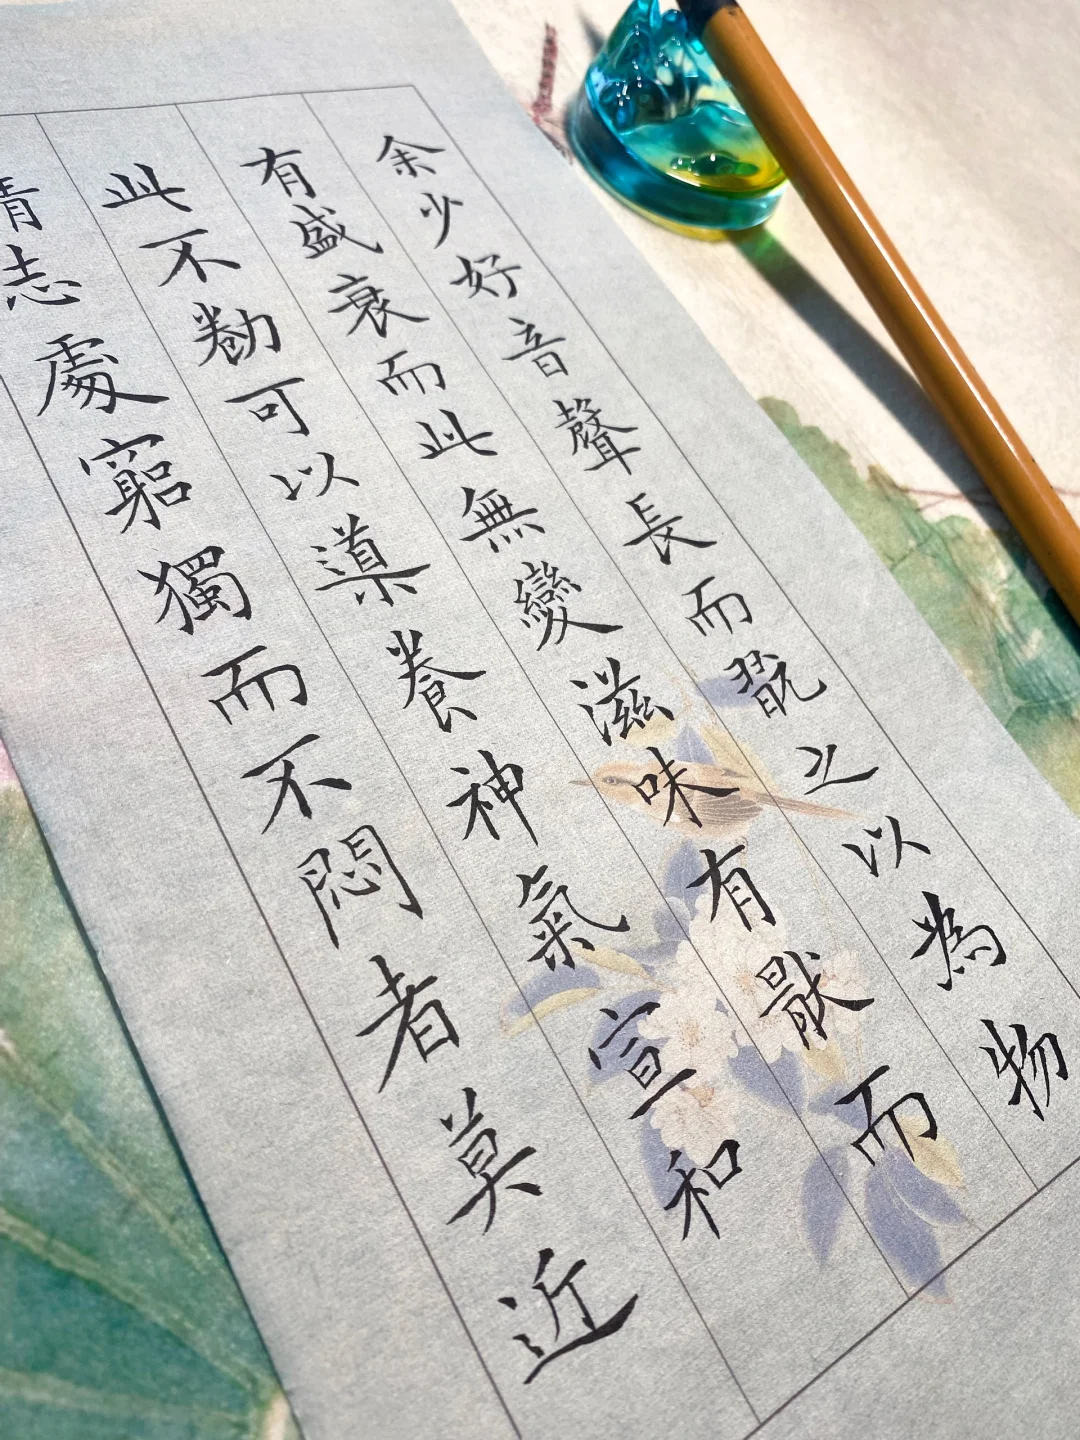 余少好音聲長而翫之以為物
有盛衰而此無變滋味有猒而
此不勌可以導養神氣宣和
情志處窮獨而不悶者莫近